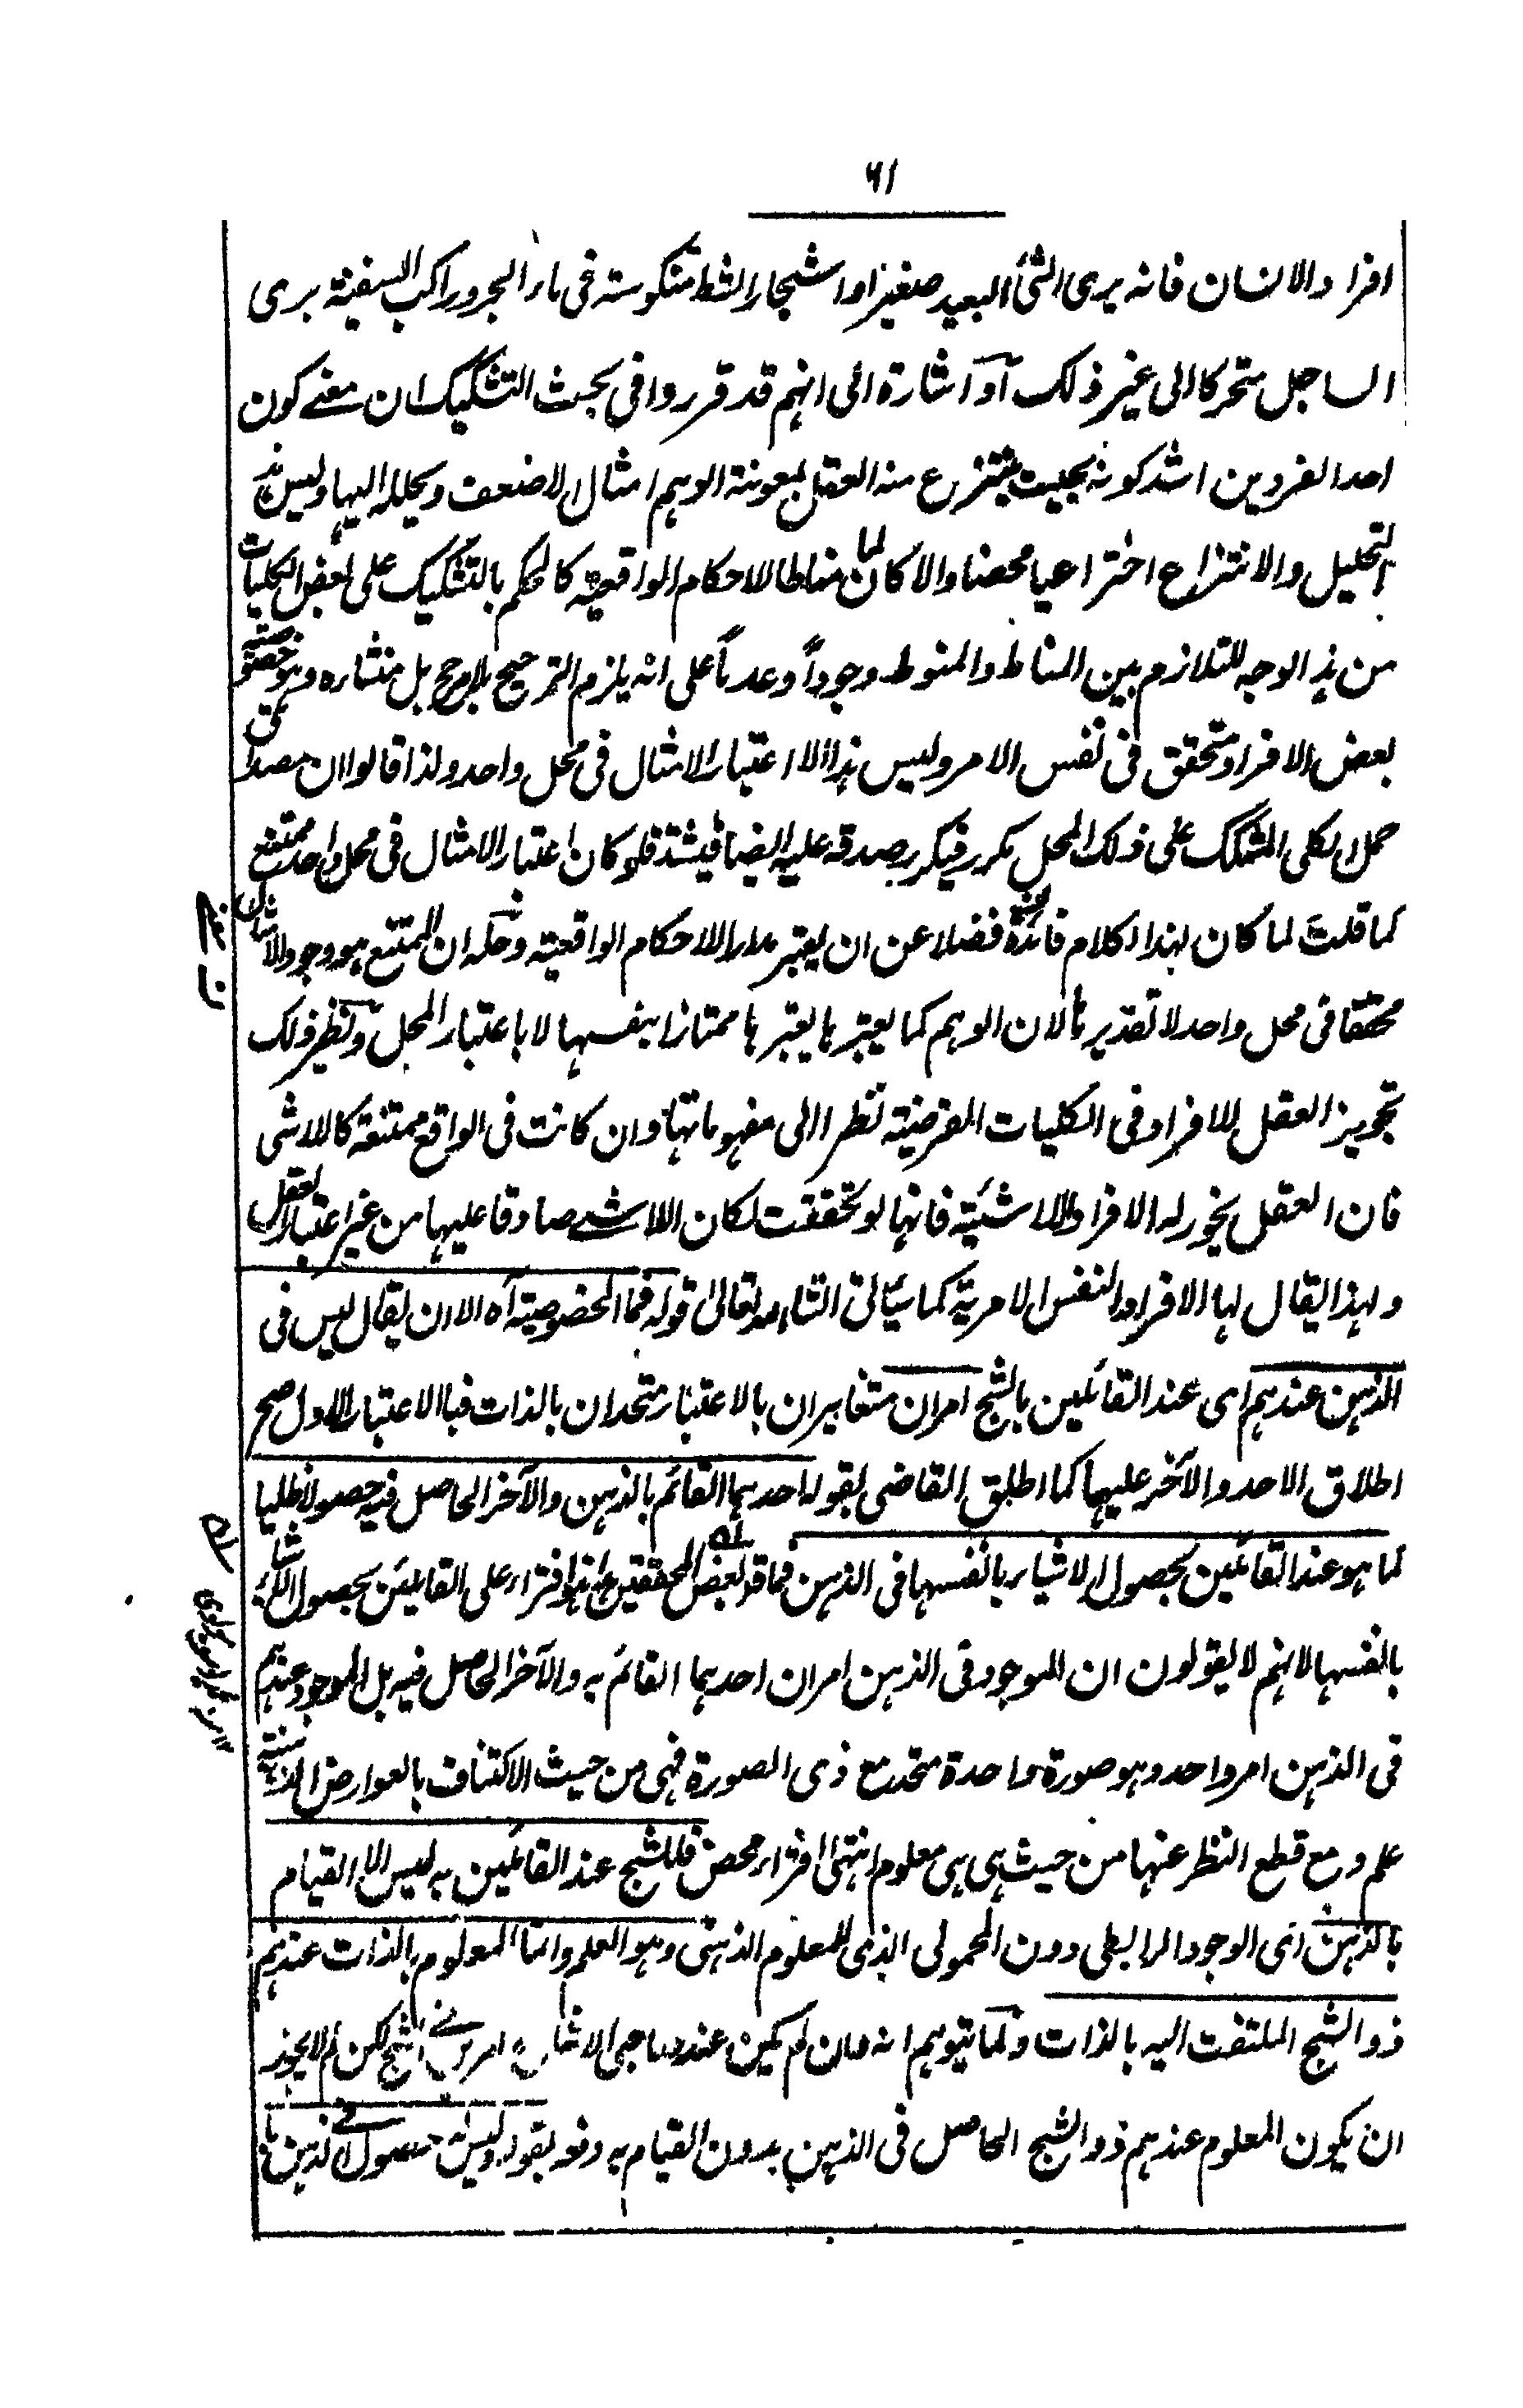 ٦١
افراد الانسان فانه يرى الشئ البعيد صغيرا واشجار الشط منكوسة فى ماء البحر وراكب السفينة يرى
الساحل متحركا الى غير ذلك آو اشارة الى انهم قد قرروا فى بحث التشكيك ان معنے كون
احد الفردين اشد كونه بحيث ينتزع منه العقل بمعونة الوهم امثال الاضعف ويحلله اليها وليس هذا
التحليل والانتزاع اختراعيا محضا والا لما كان مناطا للاحكام الواقعية كالحكم بالتشكيك على بعض الكليات
من هذا الوجه للتلازم بين المناط والمنوط وجوداً وعدماً على انه يلزم الترجيح بلا مرجح بل منشاره وهو خصوصية
بعض الافراد متحقق فى نفس الامر وليس هذا الا اعتبار الامثال فى محل واحد ولذا قالوا ان مصداق
حمل الكلى المشكك على ذلك المحل مكرر فيكرر صدقه عليه ايضا فيشتد فلو كان اعتبار الامثال فى محل واحد ممتنع
كما قلت لما كان لهذا الكلام فائدة فضلا عن ان يعتبر مدار الاحكام الواقعية وحله ان الممتنع هو وجود الامثال
محققا فى محل واحد لا تقديرها لان الوهم كما يعتبرها يعتبرها ممتازا بنفسها لا باعتبار المحل ونظير ذلك
تجويز العقل للافراد فى الكليات الفرضية نظرا الى مفهوماتها وان كانت فى الواقع ممتنعة كاللاشى
فان العقل يجوز له الافراد اللاشيئية فانها لو تحققت لكان اللاشے صادقا عليها من غير اعتبار العقل
ولهذا يقال لها الافراد النفس الامرية كما سيأتى انشاء الله تعالى قوله فما الخصوصية آه الا ان يقال ليس فى
الذهن عندهم اى عند القائلين بالشبح امران متغايران بالاعتبار متحدان بالذات فبالاعتبار الاول صح
اطلاق الاحد والآخر عليها كما اطلق القاضى بقوله احدهما القائم بالذهن والآخر الحاصل فيه حصولا ظليا
كما هو عند القائلين بحصول الاشياء بانفسها فى الذهن فما قال بعض المحققين ان هذا افتراء على القائلين بحصول الاشياء
بانفسها لانهم لا يقولون ان الموجود فى الذهن امران احدهما القائم به والآخر الحاصل فيه بل الموجود عندهم
فى الذهن امر واحد وهو صورة واحدة متحد مع ذى الصورة فهى من حيث الاكتناف بالعوارض الذهنية
علم ومع قطع النظر عنها من حيث هى هى معلوم انتهى افتراء محض فللشبح عند القائلين به ليس الا القيام
بالذهن اى الوجود الرابطى دون المحمولى الذى للمعلوم الذهنى وهو العلم واما المعلوم بالذات عندهم
ذو الشبح الملتفت اليه بالذات ولما يتوهم انه وان لم يكن عند صاحبى الاشباح امر الشبح لكن لم لا يجوز
ان يكون المعلوم عندهم ذو الشبح الحاصل فى الذهن بدون القيام به دفعه بقوله وليس له حصول فے الذهن